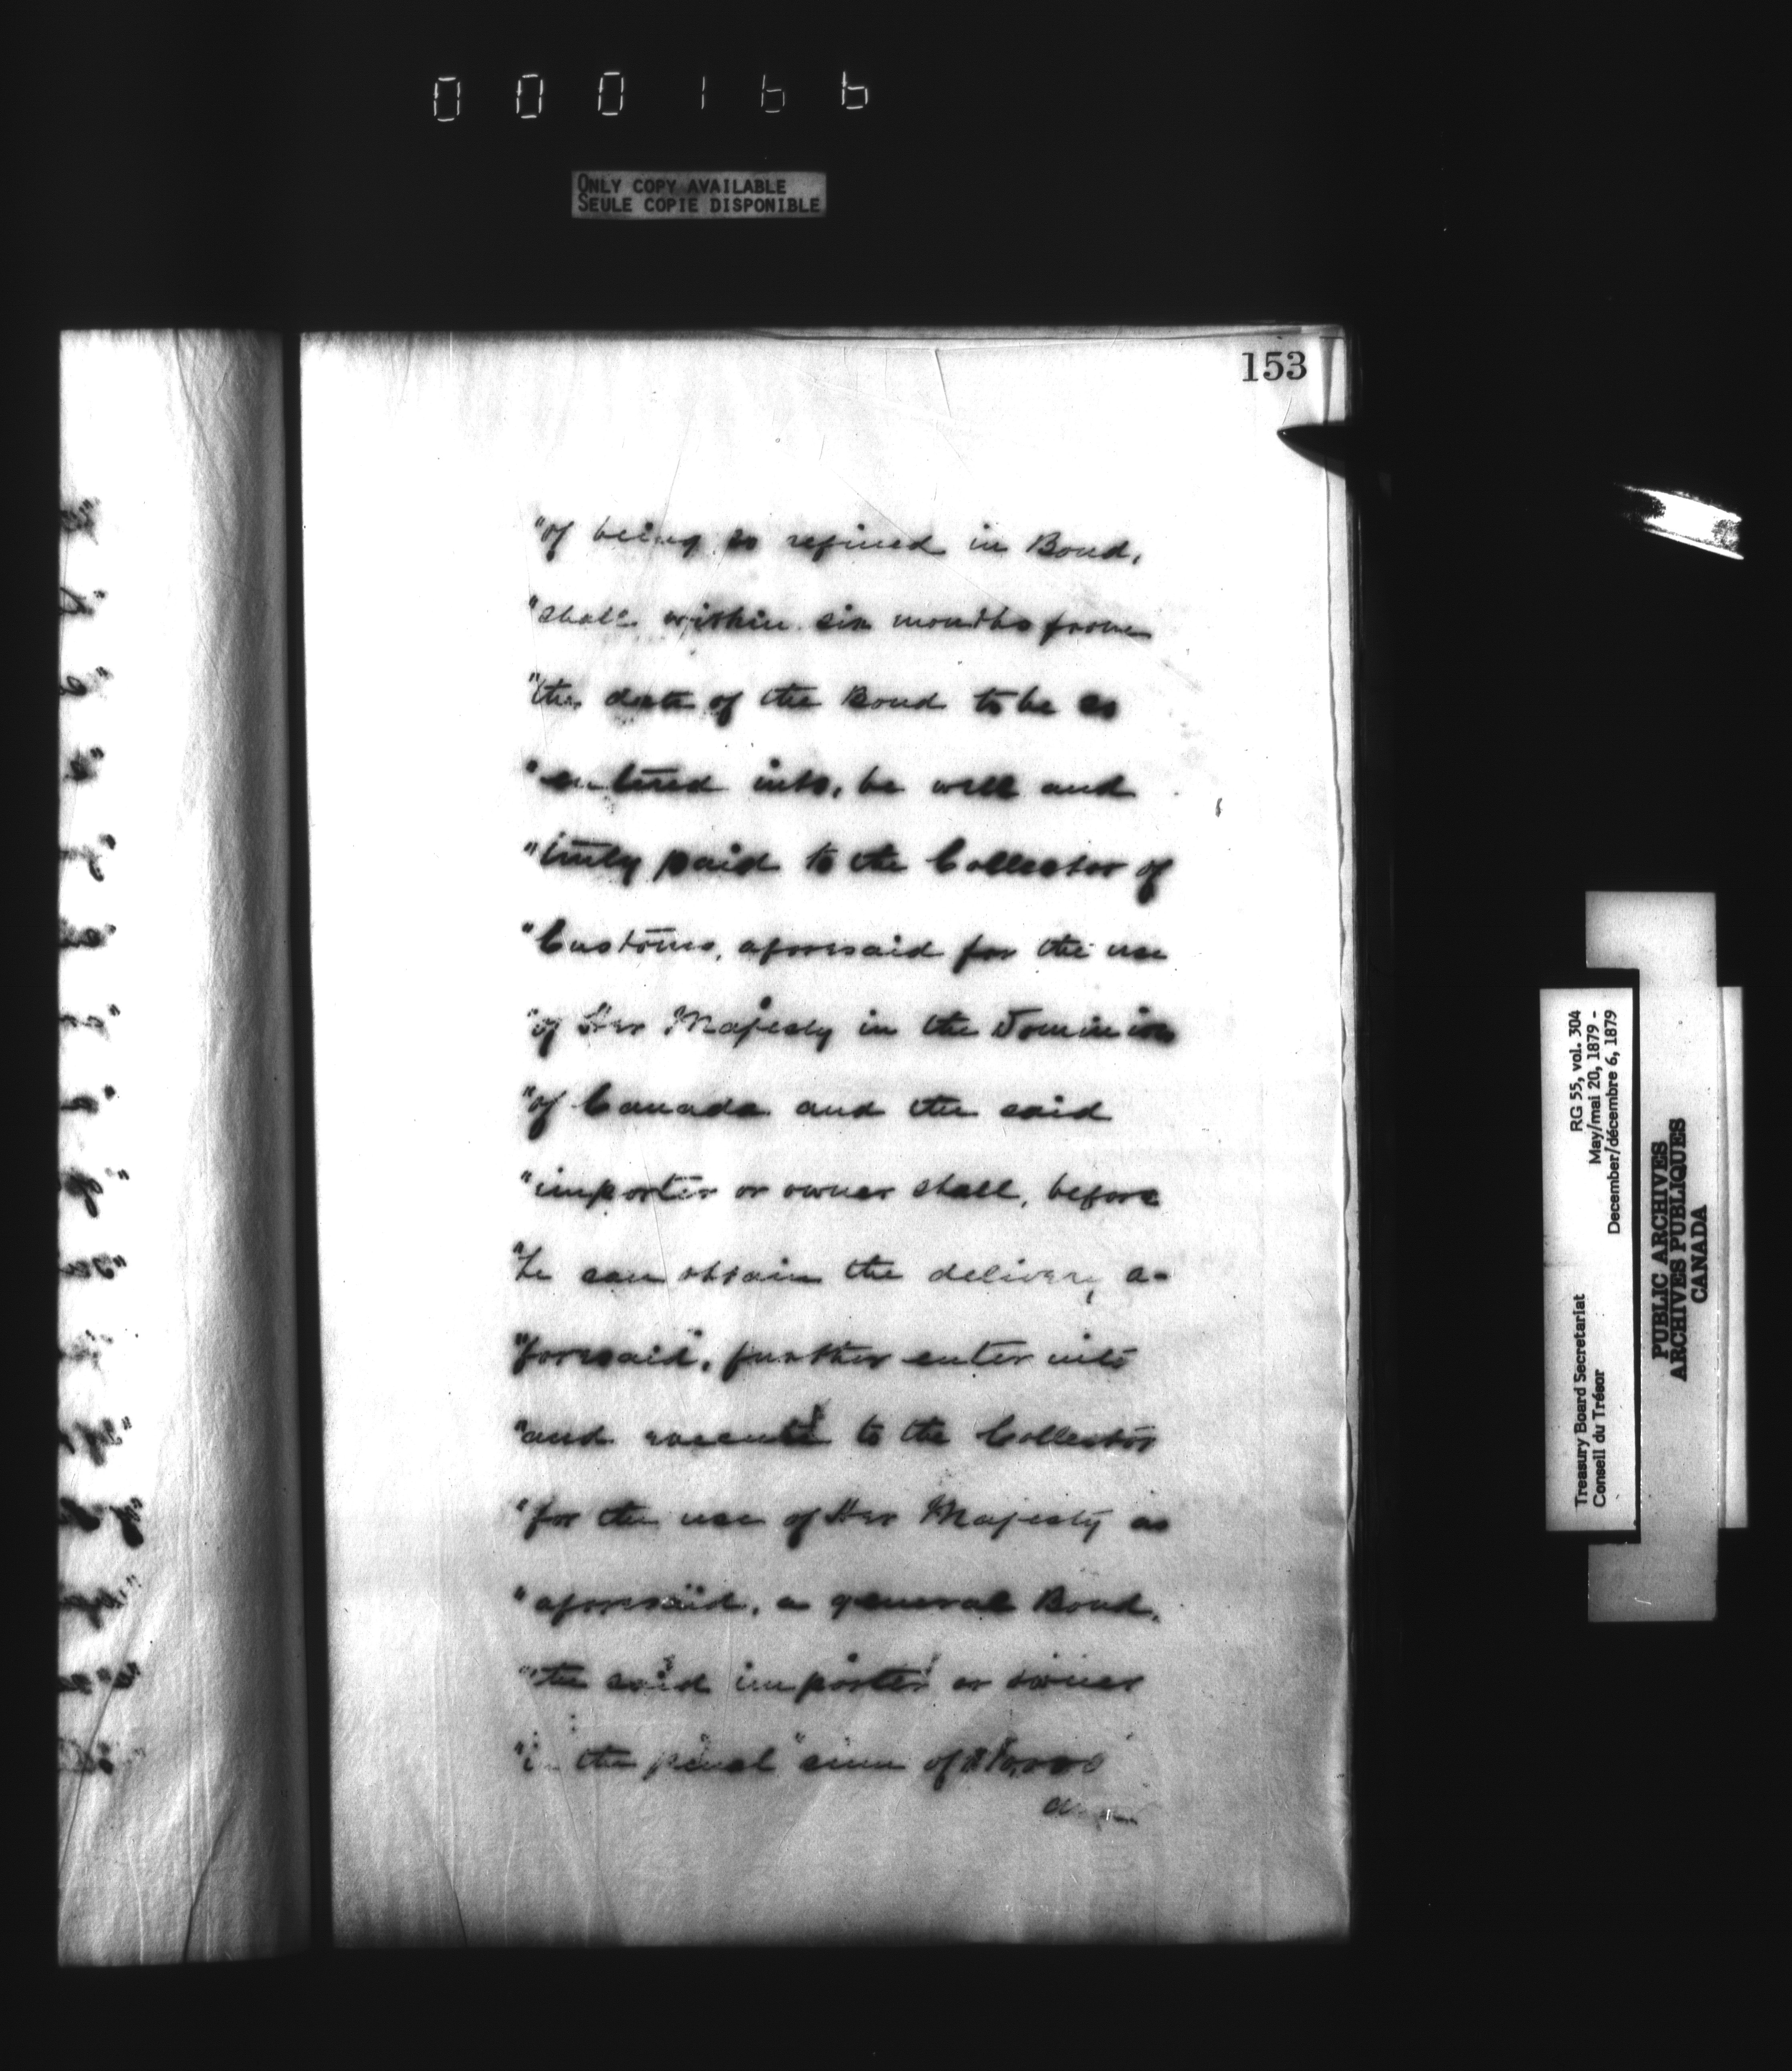 000166
ONLY COPY AVAILABLE
SEULE COPIE DISPONIBLE
153
"of being so refined in Bond,
"shall within six months from
"the date of the Bond to be so
"entered into, be well and
"truly paid to the Collector of
"Customs, aforesaid for the use
"of Her Majesty in the Dominion
"of Canada and the said
"importer or owner shall, before
"he can obtain the delivery a-
"foresaid, further enter into
"and execute to the Collector
"for the use of Her Majesty as
"aforesaid, a general Bond,
"the said importer or owner
"in the penal sum of
RG 55, vol. 304
May/mai 20, 1879 -
December/décembre 6, 1879
Treasury Board Secretariat
Conseil du Trésor
PUBLIC ARCHIVES
ARCHIVES PUBLIQUES
CANADA